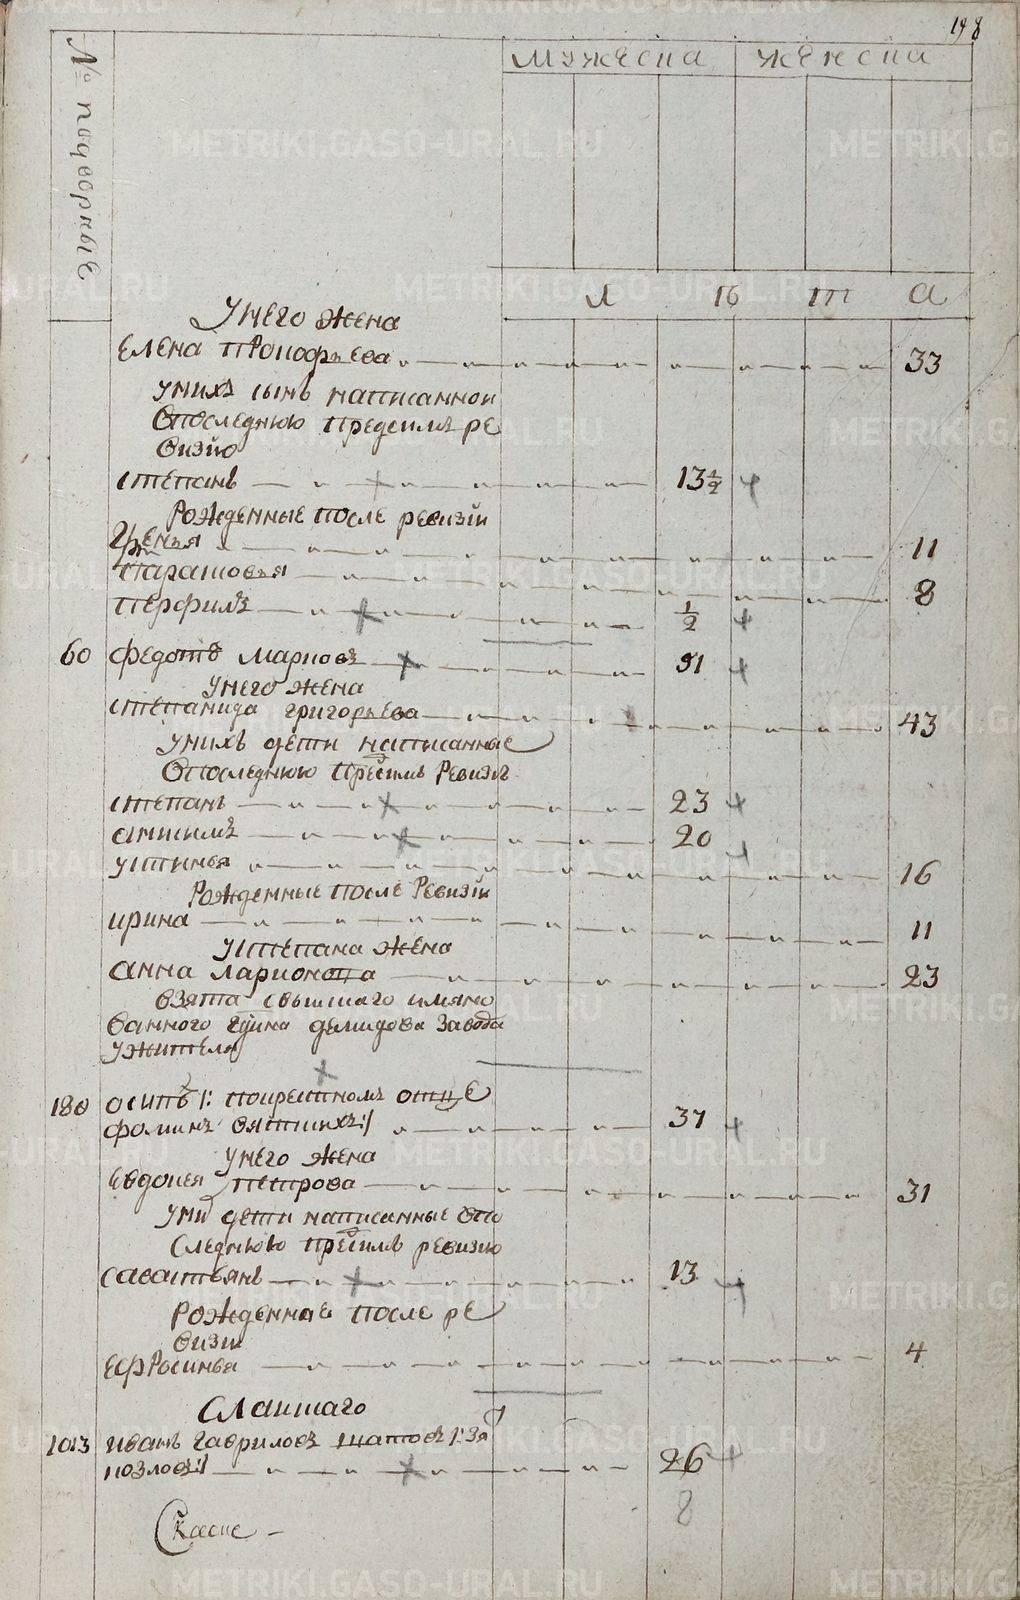 198
№ подворные
мужеска женска
л ѣ т а
У него жена
Елена Прокофьева 33
у нихъ сынъ написанной
в последнюю пред симъ ре
визию
Степанъ 13½
Рожденные после ревизiи
11
Парасковья 8
Перфилъ ½
60 Федотъ Марковъ 51
У него жена
Степанида Григорьева 43
У нихъ дети написанные
в последнюю пре симъ Ревизи
Степанъ 23
Анисимъ 20
Устинья 16
Рожденные после Ревизiи
Ирина 11
У Степана жена
Анна Ларионова 23
взята свышшаго имяно
ванного Гдина Демидова завода
у жителя
180 Осипъ /: по крестномъ отце
Фоминъ Вяткихъ :/ 37
У него жена
Евдокея Петрова 31
У ни дети написанные в по
следнюю пре симъ ревизию
Саватѣянъ 13
Рожденная после ре
визи
Ефросинья 4
1013 Иванъ Гавриловъ 26
козловъ :/
8